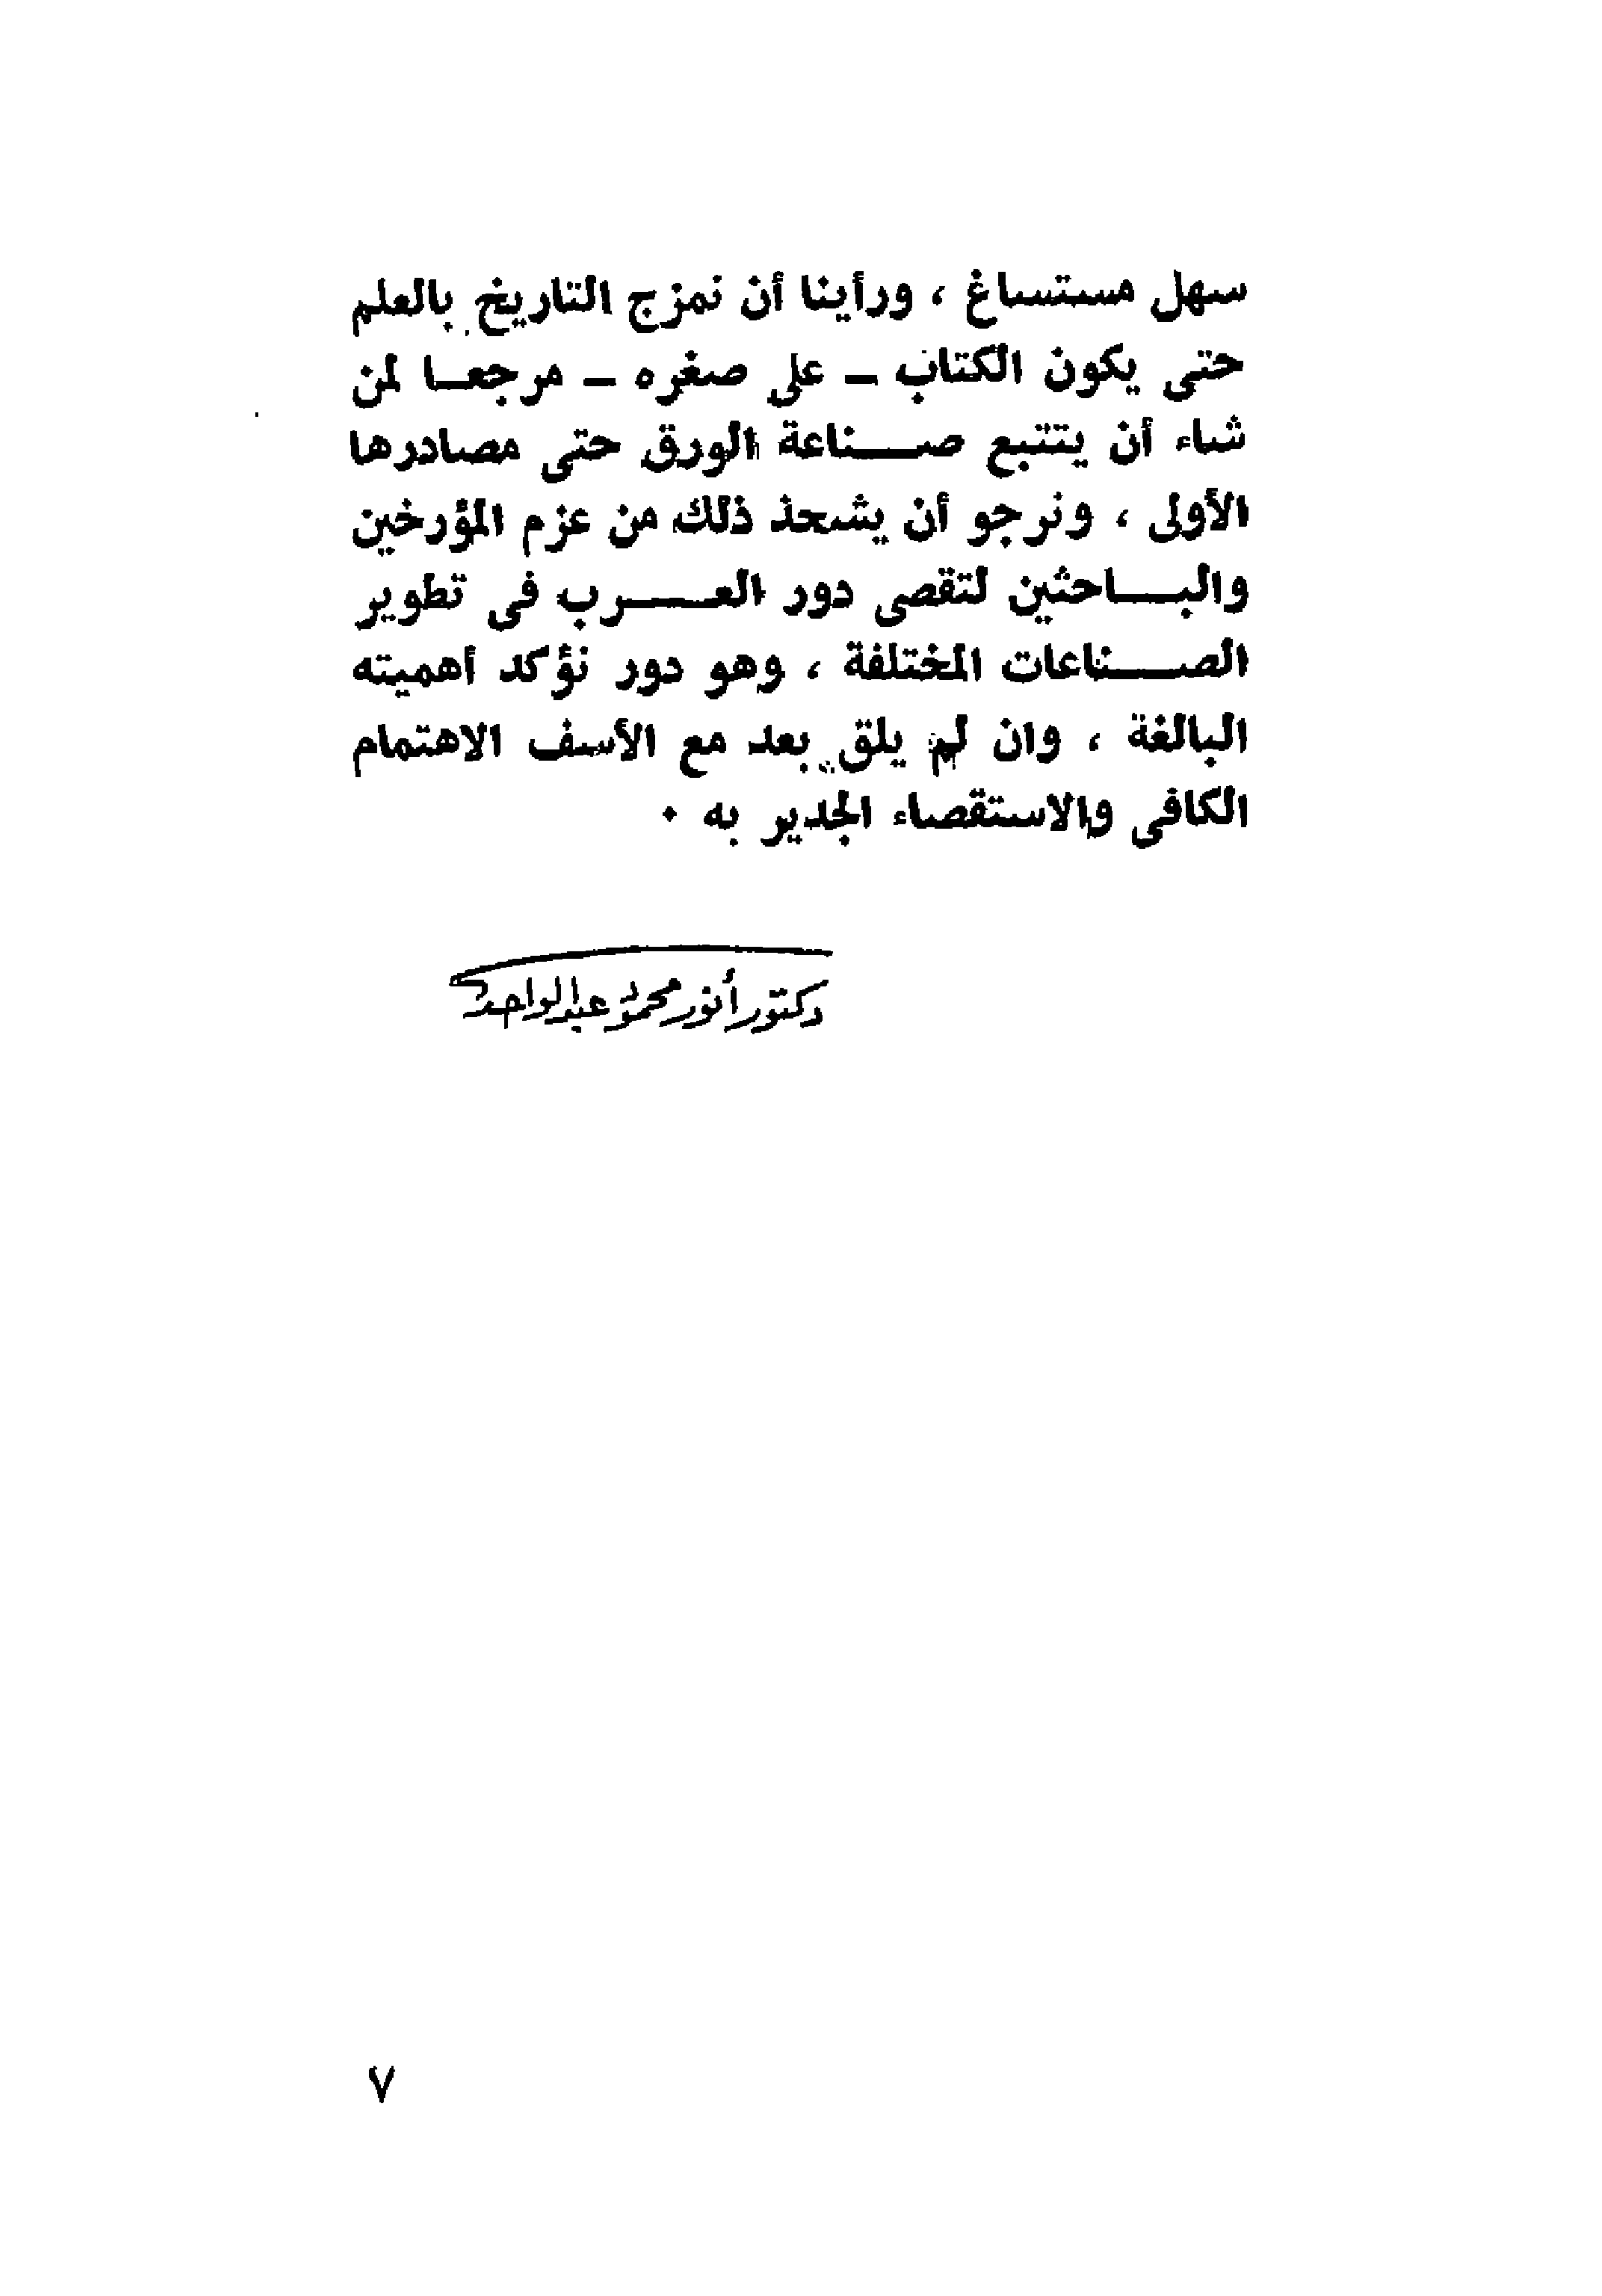 سهل مستساغ ، ورأينا أن نمزج التاريخ بالعلم
حتى يكون الكتاب – على صغره – مرجعا لمن
شاء أن يتتبع صناعة الورق حتى مصادرها
الأولى ، ونرجو أن يشحذ ذلك من عزم المؤرخين
والباحثين لتقصى دور العرب فى تطوير
الصناعات المختلفة ، وهو دور نؤكد أهميته
البالغة ، وان لم يلق بعد مع الأسف الاهتمام
الكافى والاستقصاء الجدير به ٠
دكتور أنور محمود عبد الواحد
٧